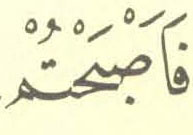 فَاَصْبَحْتُمْ